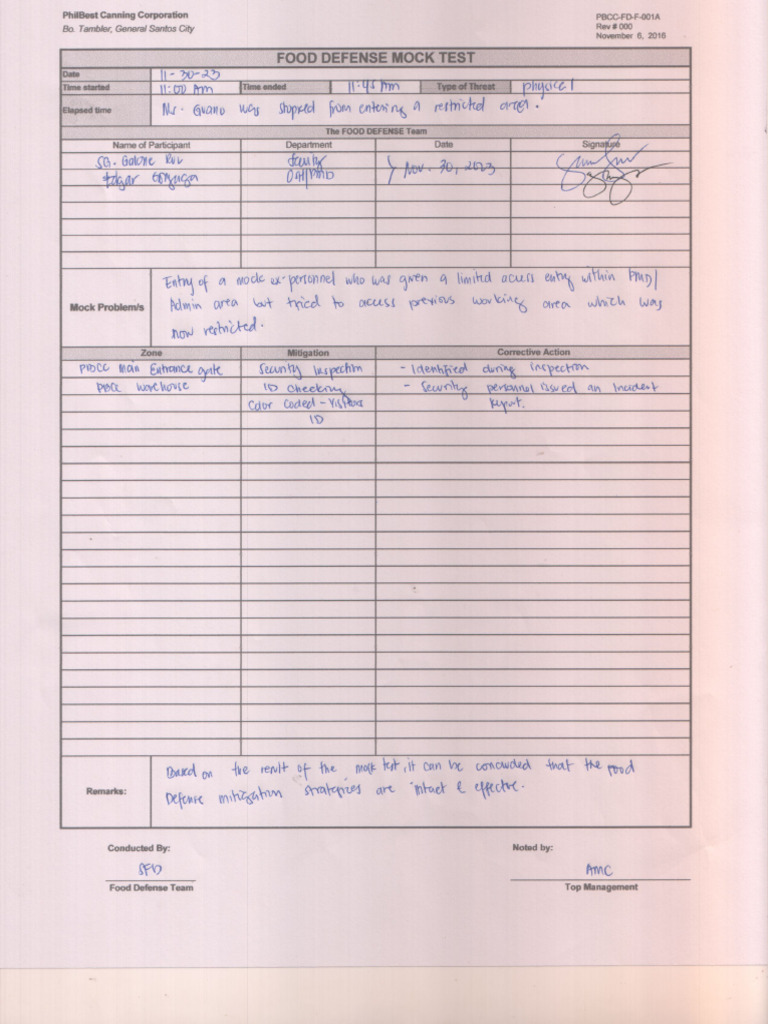 PhilBest Canning Corporation
Bo. Tambler, General Santos City
PBCC-FD-F-001A
Rev # 000
November 6, 2016
FOOD DEFENSE MOCK TEST
Date 11-30-23
Time started 11:00 AM Time ended 11:45 AM Type of Threat physical
Elapsed time Ms. Guano was stopped from entering a restricted area.
The FOOD DEFENSE Team
Name of Participant Department Date Signature
SG. Galone
Edgar
Nov. 30, 2023
Mock Problem/s
Entry of a mock ex-personnel who was given a limited access entry within PMD/
Admin area but tried to access previous working area which was
now restricted.
Zone Mitigation Corrective Action
PBCC Main Entrance gate Security Inspection - Identified during inspection
PBCC Warehouse ID Checking - Security personnel issued an Incident
Color Coded - Visitors Report.
ID
Remarks:
Based on the result of the mock test, it can be concluded that the Food
Defense mitigation strategies are intact & effective.
Conducted By: Noted by:
SFD AMC
Food Defense Team Top Management